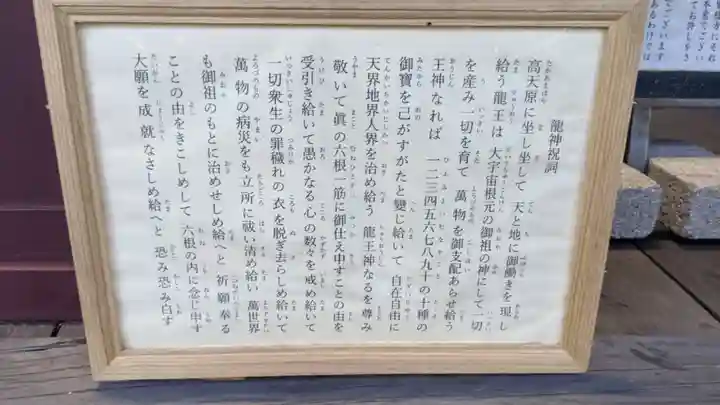 龍神祝詞
高天原に坐し坐して 天と地に御働きを 現し
給う 龍王は 大宇宙根元の 御祖の 神にして 一切
を産み 一切を育て 萬物を 御支配あらせ給う
王神なれば 一二三四五六七八九十の 十種の
御寶を 己がすがたと 變じ給いて 自在自由に
天界地界人界を 治め給う 龍王神なるを 尊み
敬いて 眞の 六根一筋に 御仕え申すことの由を
受引き給いて 愚かなる 心の数々を 戒め給いて
一切衆生の 罪穢れの 衣を 脱ぎ去らしめ給いて
萬物の 病災をも 立所に 祓い清め給い 萬世界
も 御祖のもとに 治めせしめ給へと 祈願奉る
ことの由を きこしめして 六根の内に 念じ申す
大願を 成就なさしめ給へと 恐み恐み白す